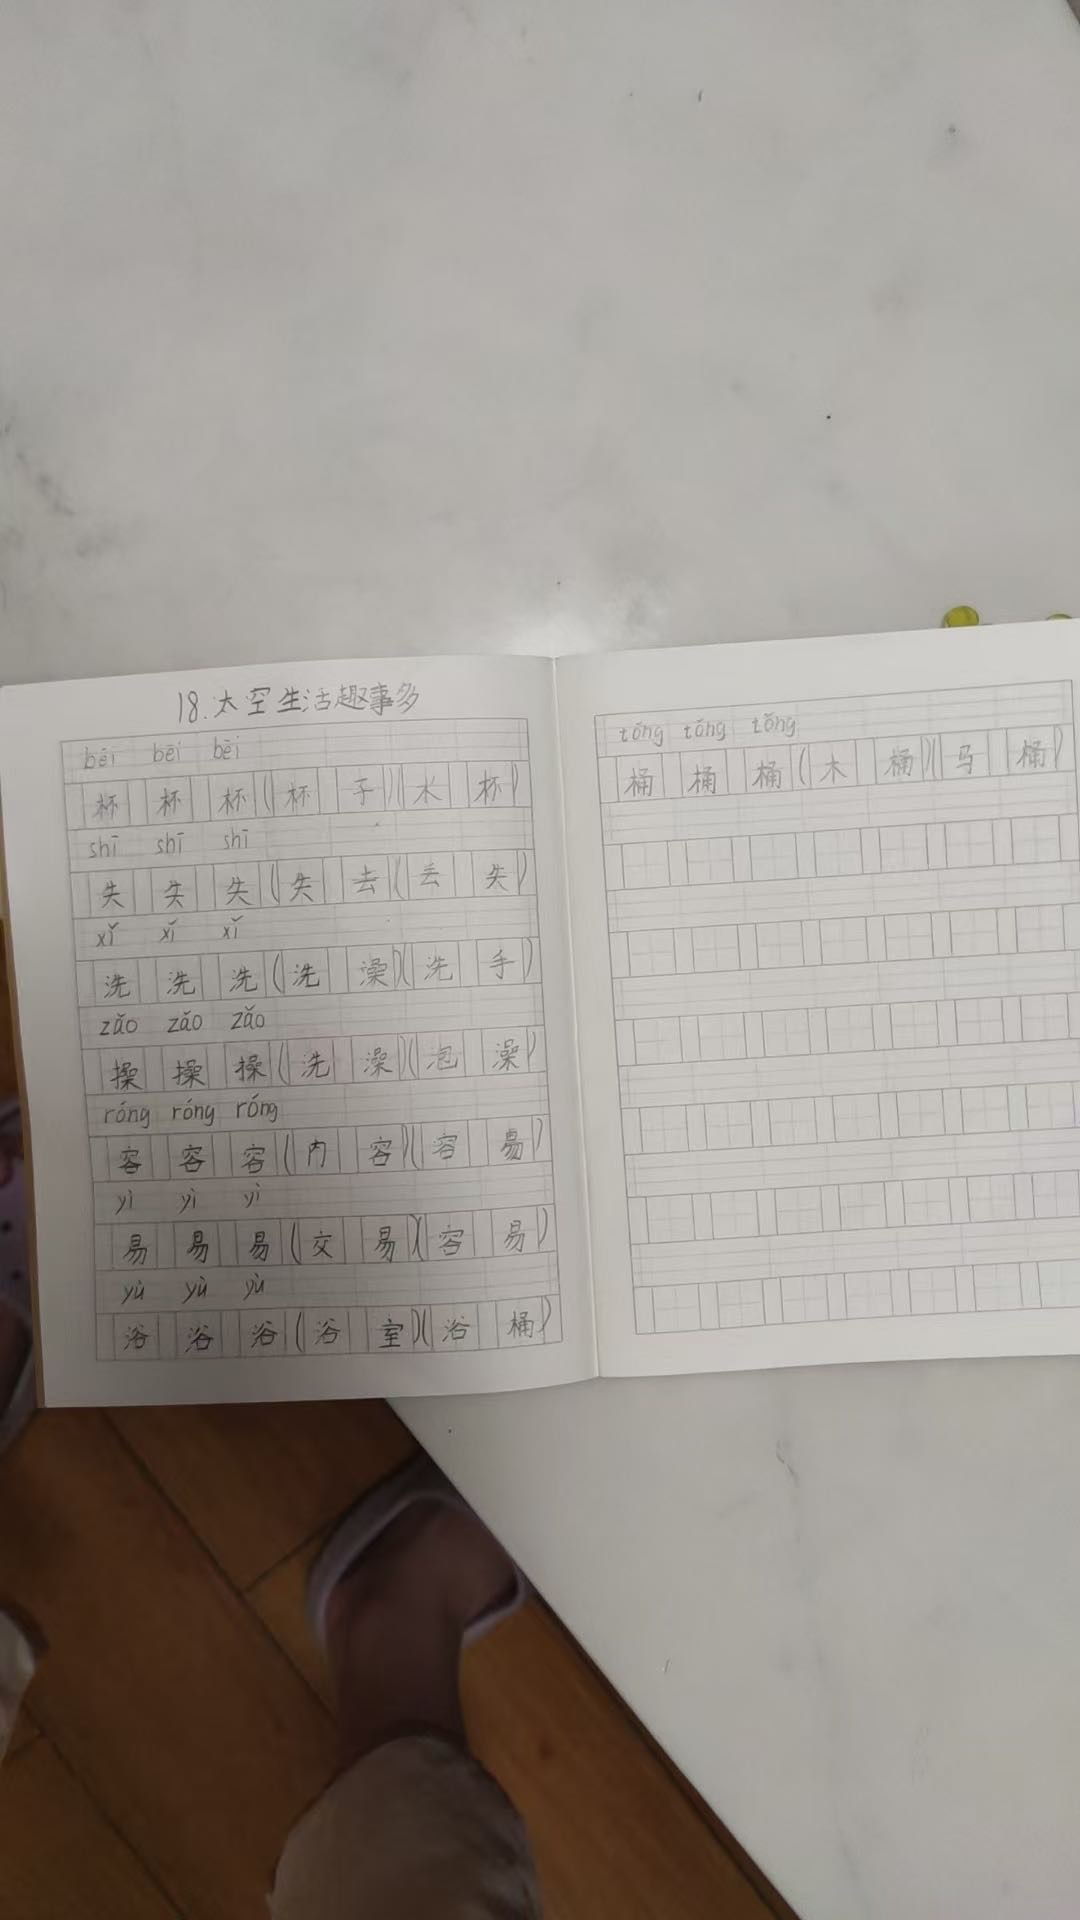 18.太空生活趣事多
bēi bēi bēi
杯 杯 杯(杯 子)(水 杯)
shī shī shī
失 失 失(失 去)(丢 失)
xǐ xǐ xǐ
洗 洗 洗(洗 澡)(洗 手)
zǎo zǎo zǎo
操 操 操(洗 澡)(泡 澡)
róng róng róng
容 容 容(内 容)(容 易)
yì yì yì
易 易 易(交 易)(容 易)
yù yù yù
浴 浴 浴(浴 室)(浴 桶)
tǒng tǒng tǒng
桶 桶 桶(木 桶)(马 桶)